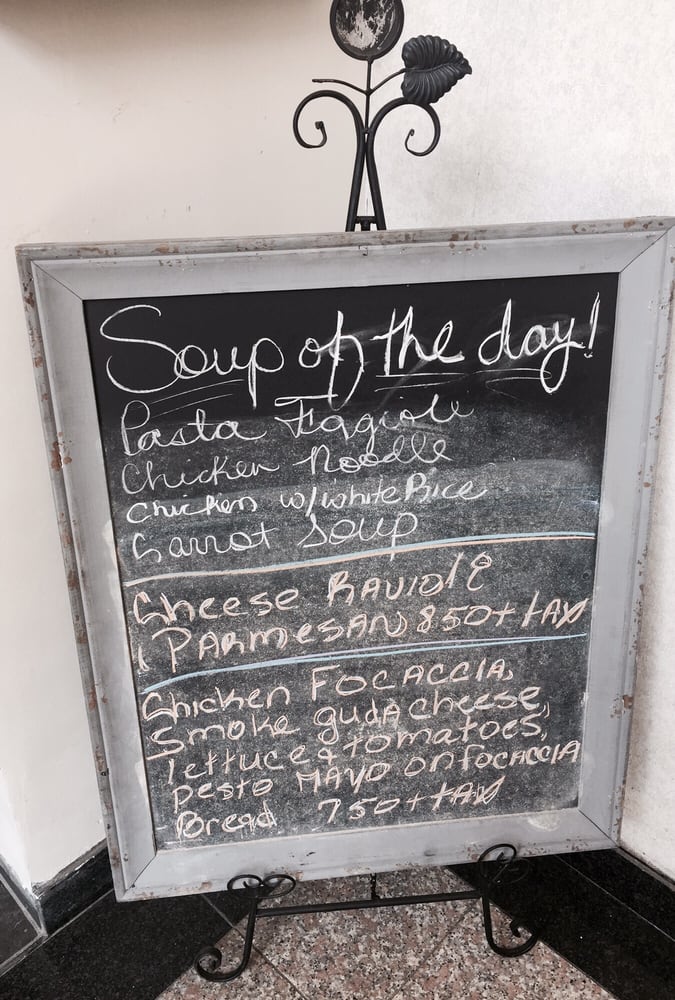 Soup of the day!
Pasta Faggiole
Chicken Noodle
Chicken w/white Rice
Carrot Soup
Cheese RAVIOlE
PARmesAN 850+tAX
Chicken FOCACCIA,
Smoke gudA cheese,
lettuce & tomatoes,
pesto MAYO ON FOCACCIA
Bread 750++AX